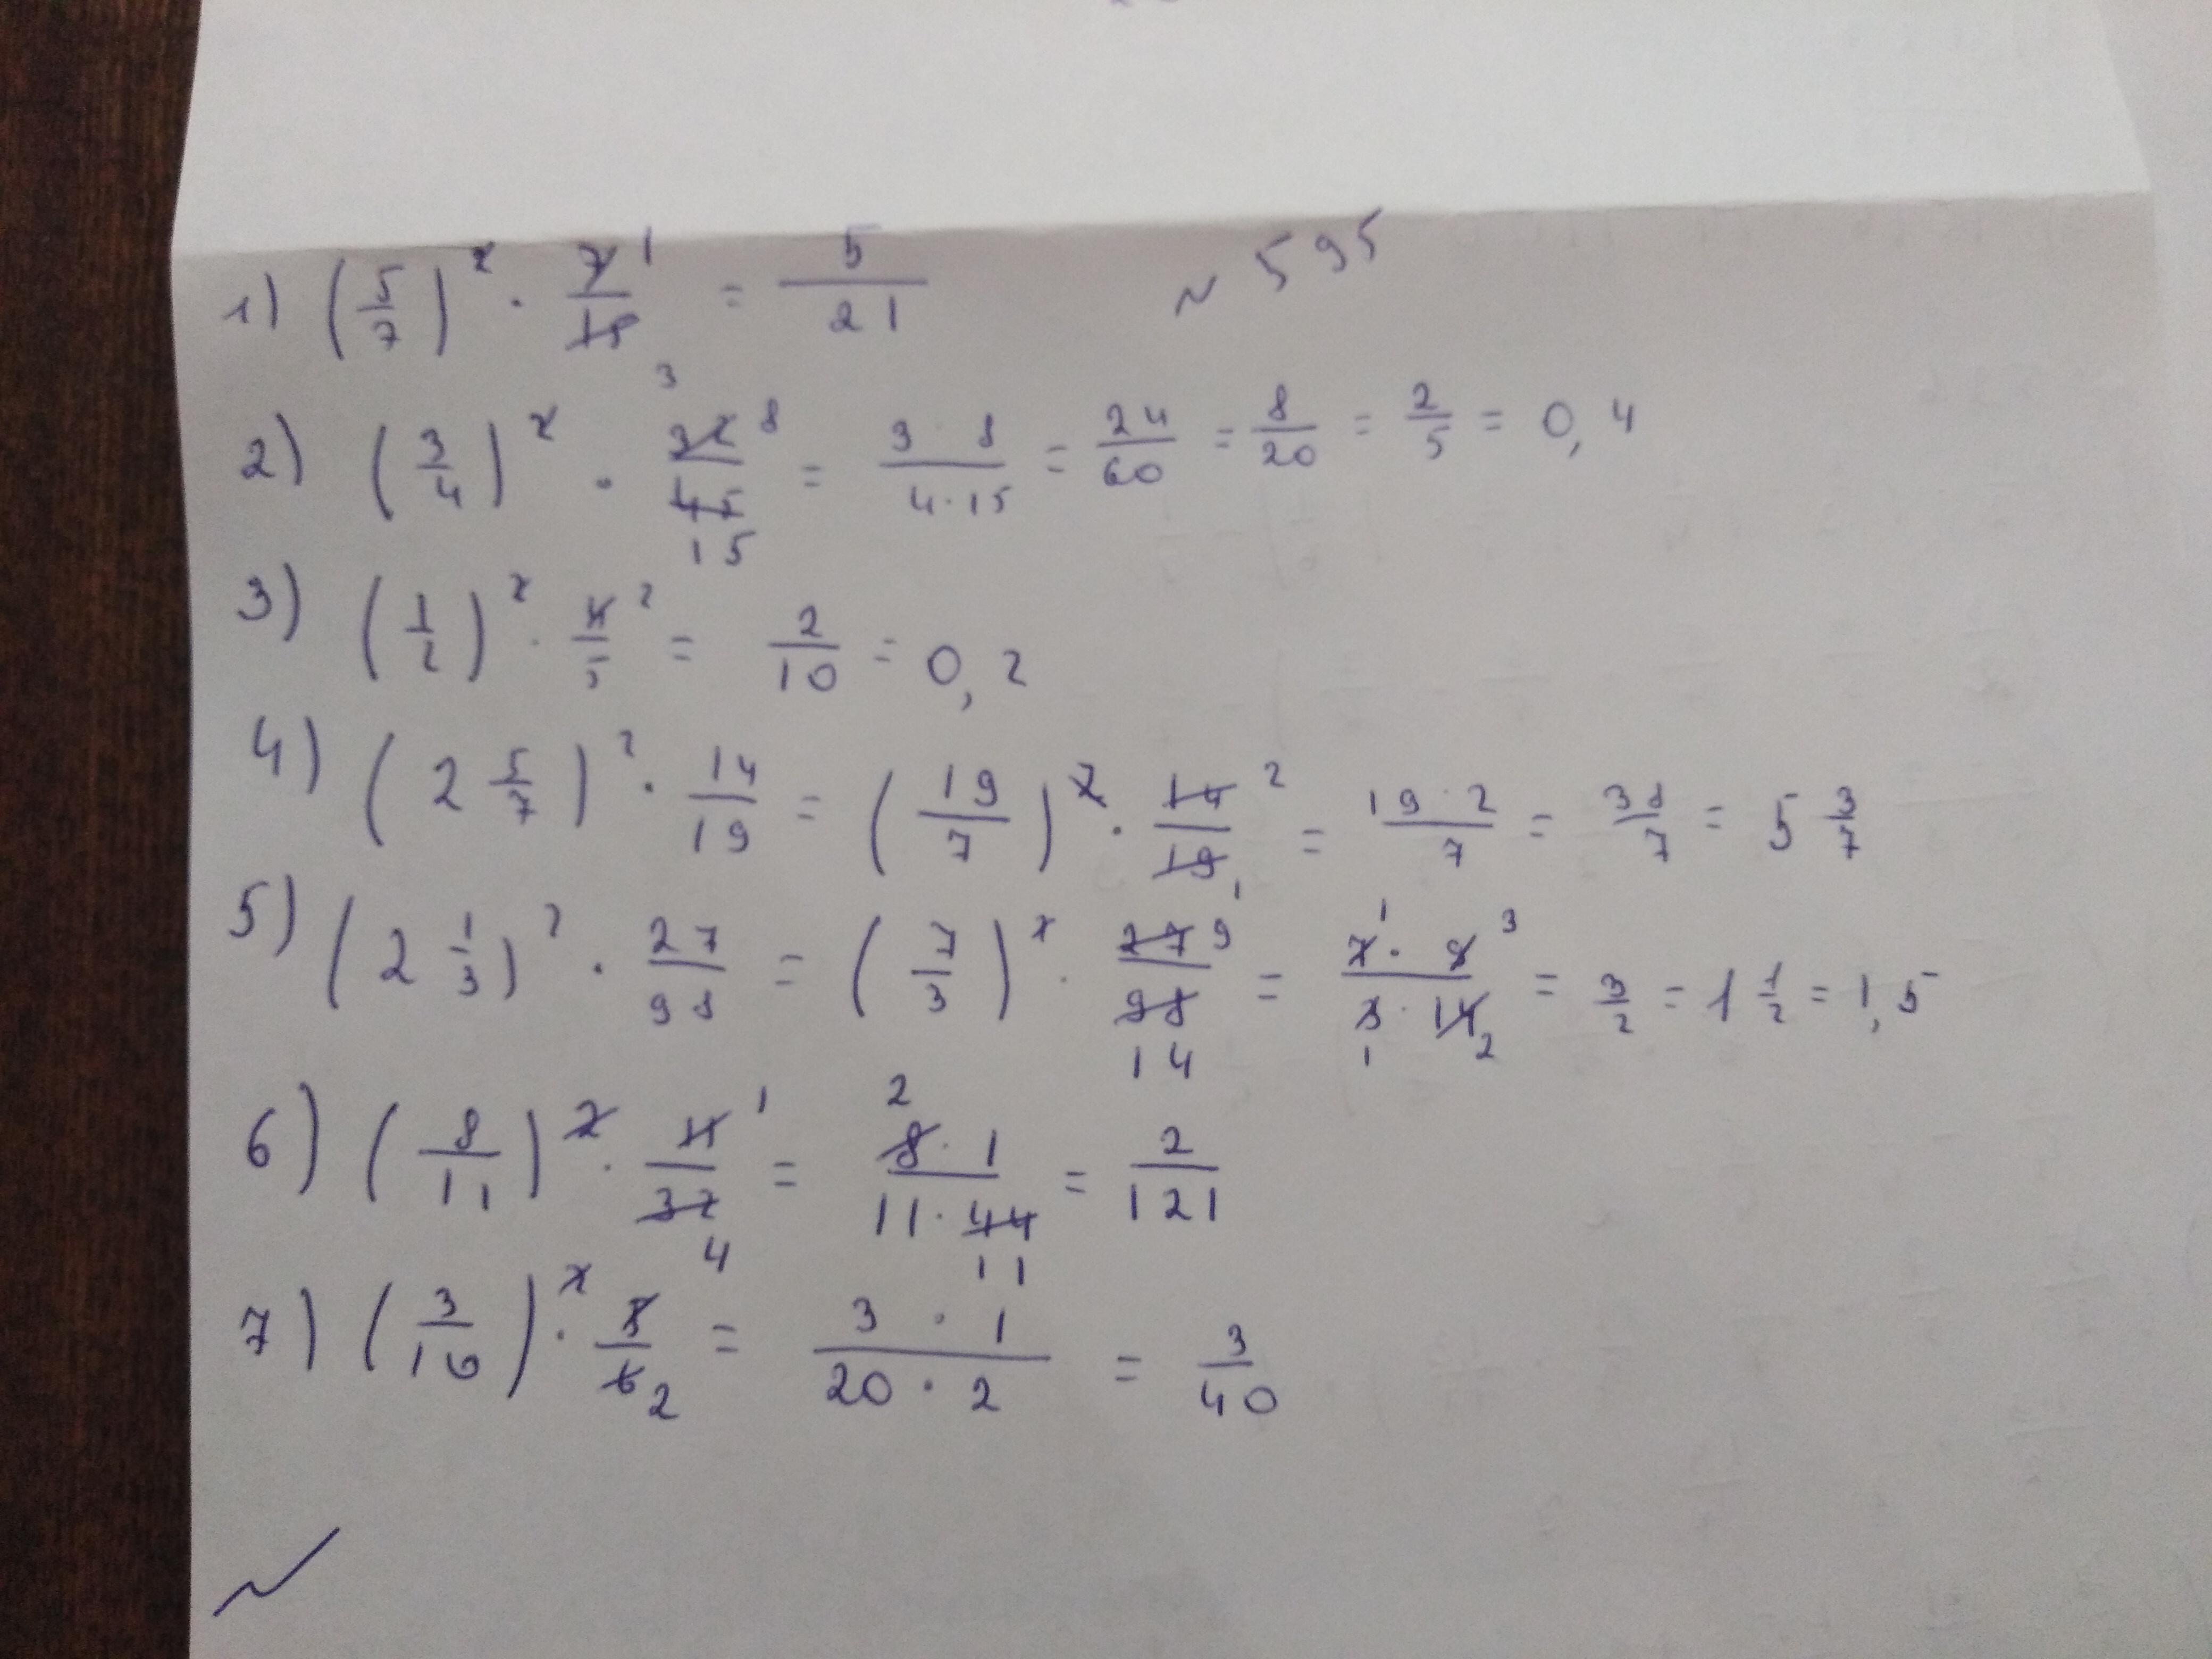 № 595
1) (5/7)² · 7/15 = 5/21
2) (3/4)² · 32/45 = 3·8/4·15 = 24/60 = 8/20 = 2/5 = 0,4
3) (1/2)² · 4/5 = 2/10 = 0,2
4) (2 5/7)² · 14/19 = (19/7)² · 14/19 = 19·2/7 = 38/7 = 5 3/7
5) (2 1/3)² · 27/98 = (7/3)² · 27/98 = 7·9/3·14 = 3/2 = 1 1/2 = 1,5
6) (8/11)² · 11/32 = 8·1/11·44 = 2/121
7) (3/10)² · 5/6 = 3·1/20·2 = 3/40